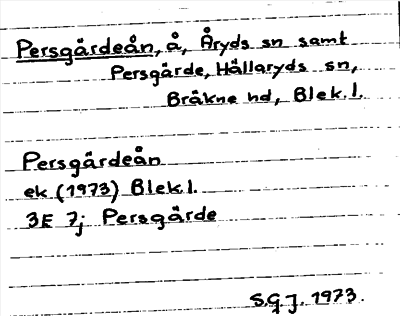 Persgärdeån, å, Åryds sn samt
Persgärde, Hällaryds sn,
Bräkne hd, Blek.l.
Persgärdeån
ek (1973) Blek.l.
3E 7j Persgärde
S.G.J. 1973.